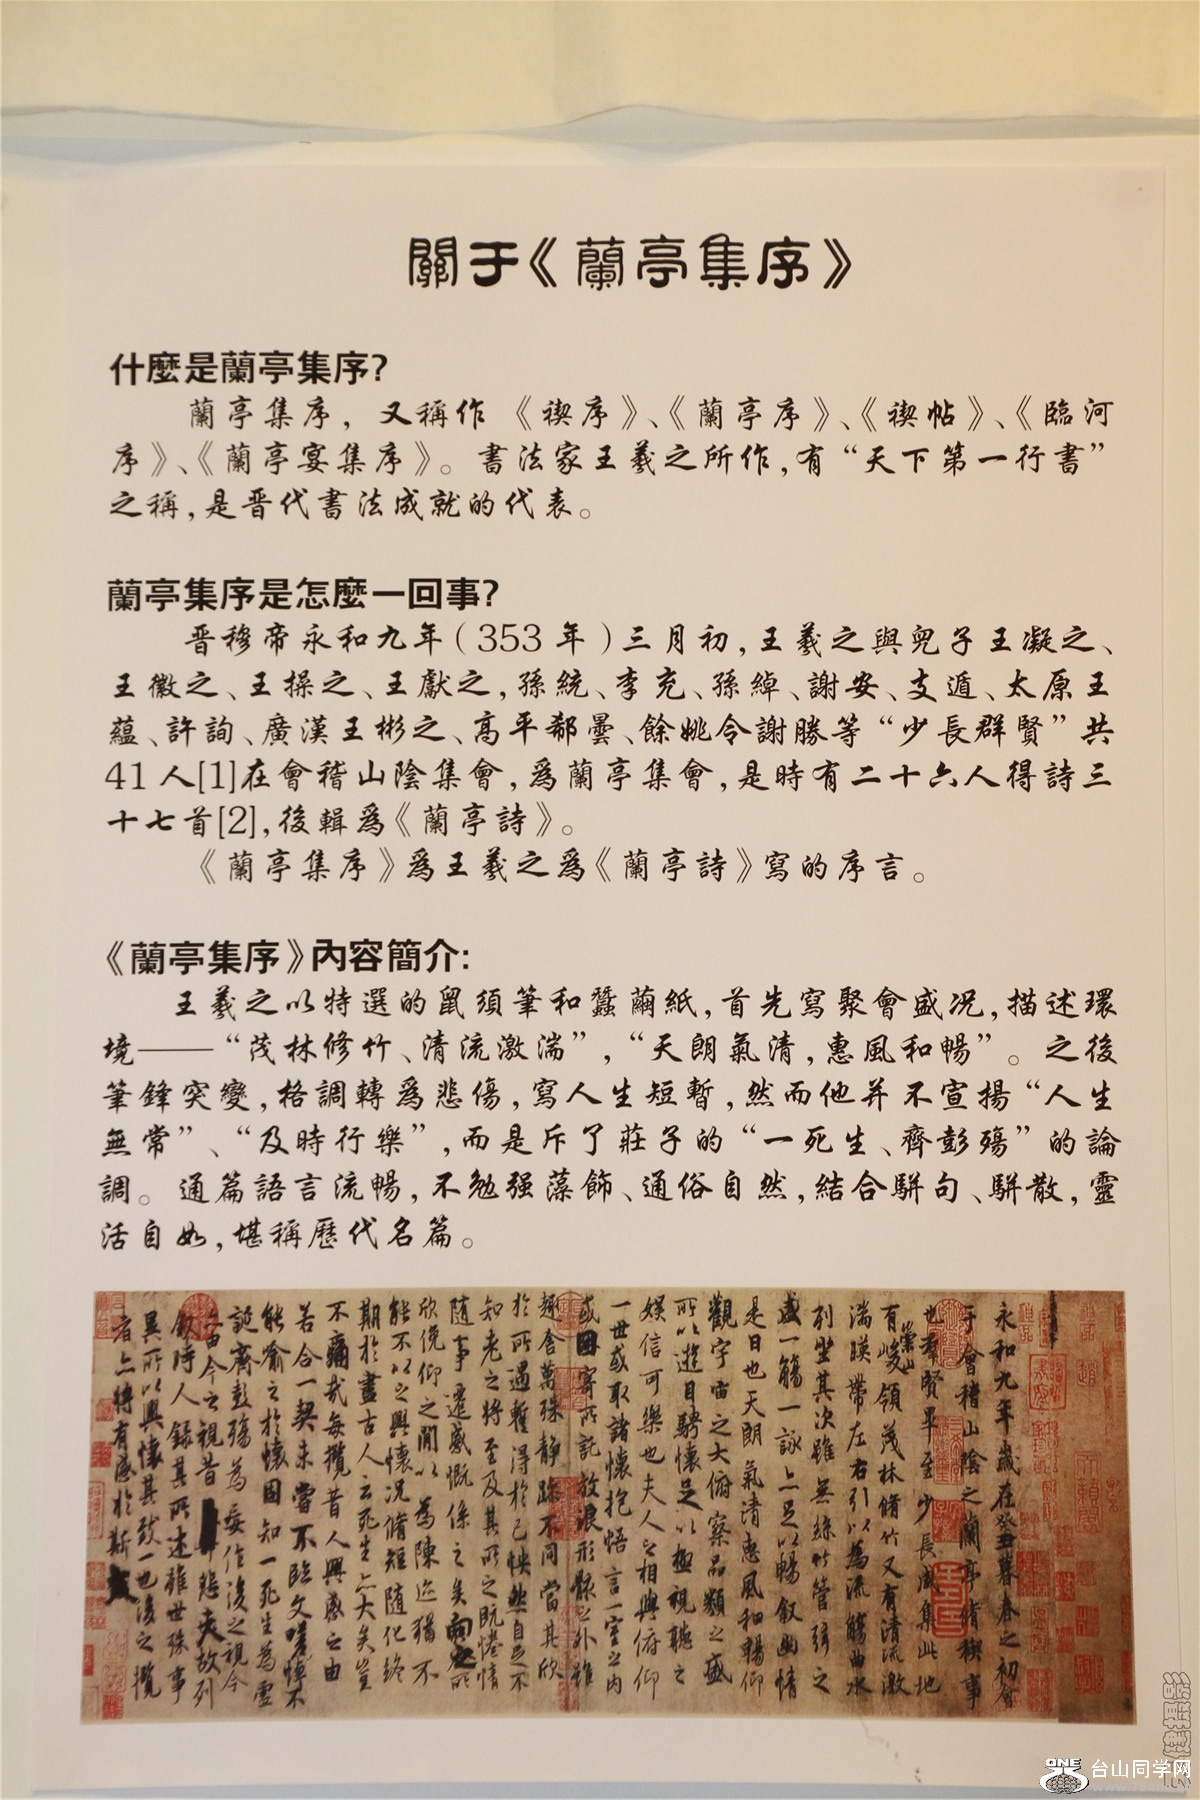 關于《蘭亭集序》
什麼是蘭亭集序?
蘭亭集序，又稱作《禊序》、《蘭亭序》、《禊帖》、《臨河
序》、《蘭亭宴集序》。書法家王羲之所作,有“天下第一行書”
之稱,是晋代書法成就的代表。
蘭亭集序是怎麼一回事?
晋穆帝永和九年(353年)三月初,王羲之與兒子王凝之、
王徽之、王操之、王獻之,孫統、李充、孫綽、謝安、支遁、太原王
蘊、許詢、廣漢王彬之、高平郗曇、餘姚令謝勝等“少長群賢”共
41人[1]在會稽山陰集會,爲蘭亭集會,是時有二十六人得詩三
十七首[2],後輯爲《蘭亭詩》。
《蘭亭集序》爲王羲之爲《蘭亭詩》寫的序言。
《蘭亭集序》內容簡介:
王羲之以特選的鼠須筆和蠶繭紙,首先寫聚會盛况,描述環
境——“茂林修竹、清流激湍”,“天朗氣清,惠風和暢”。之後
筆鋒突變,格調轉爲悲傷,寫人生短暫,然而他并不宣揚“人生
無常”、“及時行樂”,而是斥了莊子的“一死生、齊彭殤”的論
調。通篇語言流暢,不勉强藻飾、通俗自然,結合駢句、駢散,靈
活自如,堪稱歷代名篇。
永和九年歲在癸丑暮春之初會
于會稽山陰之蘭亭脩禊事
也羣賢畢至少長咸集此地
有崇山峻領茂林脩竹又有清流激
湍暎帶左右引以為流觴曲水
列坐其次雖無絲竹管弦之
盛一觴一詠亦足以暢敘幽情
是日也天朗氣清惠風和暢仰
觀宇宙之大俯察品類之盛
所以遊目騁懷足以極視聽之
娛信可樂也夫人之相與俯仰
一世或取諸懷抱悟言一室之內
或因寄所託放浪形骸之外雖
趣舍萬殊靜躁不同當其欣
於所遇暫得於己怏然自足不
知老之將至及其所之既惓情
隨事遷感慨係之矣向之所
欣俛仰之閒以為陳迹猶不
能不以之興懷況脩短隨化終
期於盡古人云死生亦大矣豈
不痛哉每攬昔人興感之由
若合一契未嘗不臨文嗟悼不
能喻之於懷固知一死生為虛
誕齊彭殤為妄作後之視今
亦由今之視昔悲夫故列
敘時人錄其所述雖世殊事
異所以興懷其致一也後之攬
者亦將有感於斯文
台山同学网